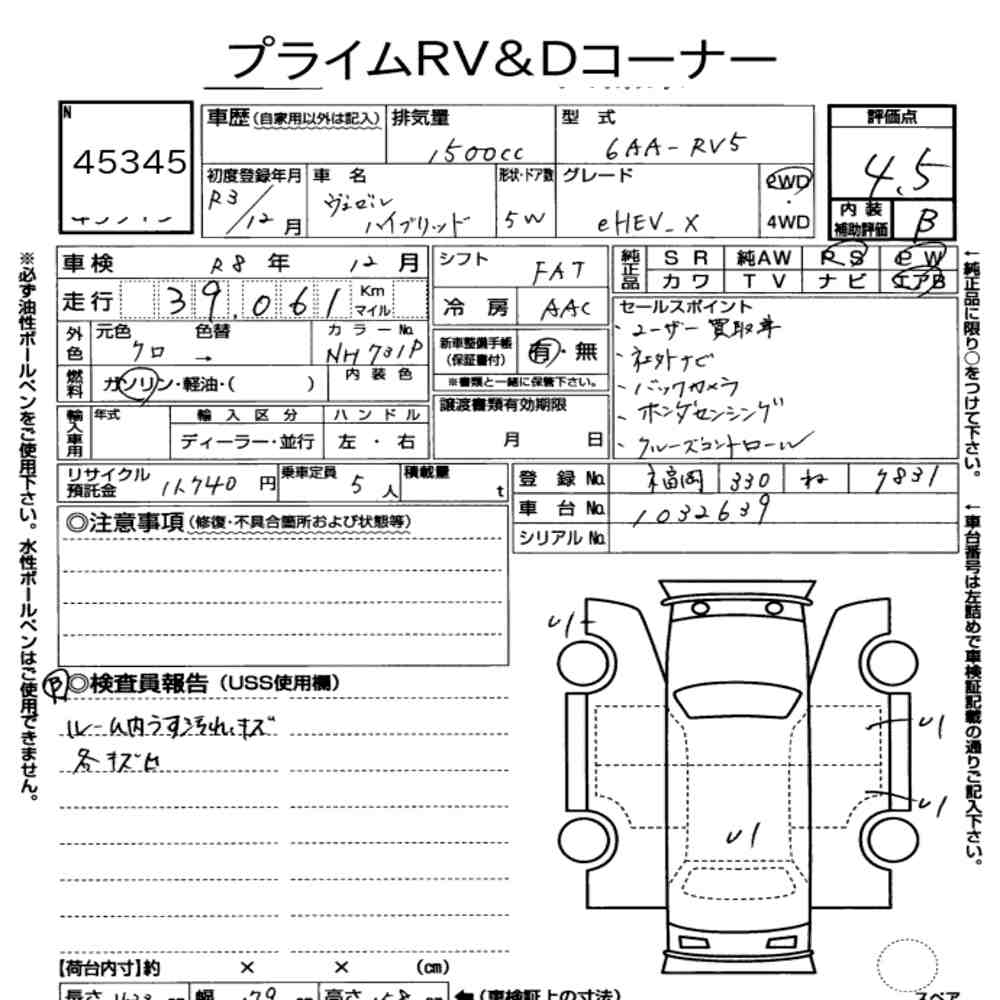 プライムRV&Dコーナー
N
45345
車歴(自家用以外は記入)
排気量
1500cc
型 式
6AA-RV5
評価点
4.5
初度登録年月
R3/12月
車 名
ヴェゼル
ハイブリッド
形状・ドア数
5W
グレード
eHEV_X
2WD
・
4WD
内装
補助評価
B
車検 R8年 12月
シフト FAT
純正品
SR 純AW PS PW
カワ TV ナビ エアB
走行 39.061 Km
マイル
冷房 AAC
セールスポイント
・ユーザー買取車
・社外ナビ
・バックカメラ
・ホンダセンシング
・クルーズコントロール
外色
元色 クロ
色替 →
カラーNo.
NH731P
新車整備手帳
(保証書付)
有・無
※書類と一緒に保管下さい。
燃料
ガソリン・軽油・( )
内装色
輸入車用
年式
輸入区分
ハンドル
ディーラー・並行
左・右
譲渡書類有効期限
月 日
リサイクル
預託金
11,740円
乗車定員
5人
積載量
t
登録No. 福岡 330 ね 7831
車台No. 1032639
シリアルNo.
◎注意事項(修復・不具合箇所および状態等)
B
◎検査員報告(USS使用欄)
ルーム内うす汚れ、キズ
各キズ凹
U1
U1
U1
U1
【荷台内寸】約 × × (cm)
長さ
幅
高さ
←(車検証上の寸法)
スペア
※必ず油性ボールペンをご使用下さい。水性ボールペンはご使用できません。
←純正品に限り○をつけて下さい。
←車台番号は左詰めで車検証記載の通りご記入下さい。